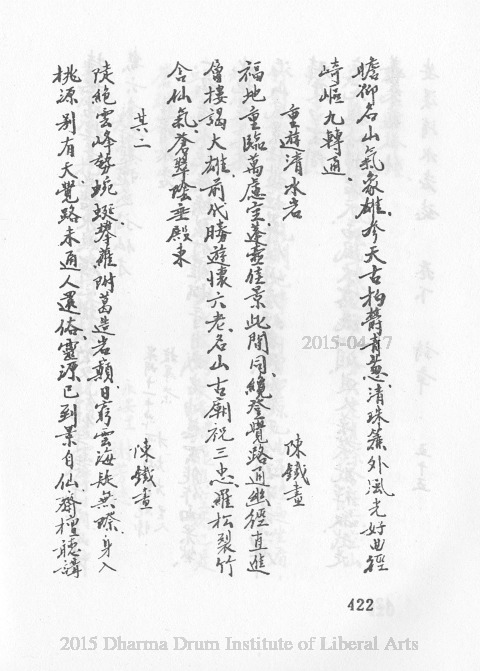 瞻仰名山氣象雄參天古柏欝青蔥清珠簾外風光好曲徑
崎嶇九轉通
重遊清水岩
陳鐵畫
福地重臨萬慮空蓬壺佳景此間同纔登覺路通幽徑直進
層樓謁大雄前代勝遊懷六老名山古廟祝三忠羅松裂竹
含仙氣蒼翠陰垂殿東
其二
陳鐵畫
陡絕雲峰勢蜿蜒攀蘿附葛造岩巔目窮雲海缺無際身入
桃源別有天覺路未通人還俗靈源已到景自仙齋檀聽講
422
2015-04-17
2015 Dharma Drum Institute of Liberal Arts